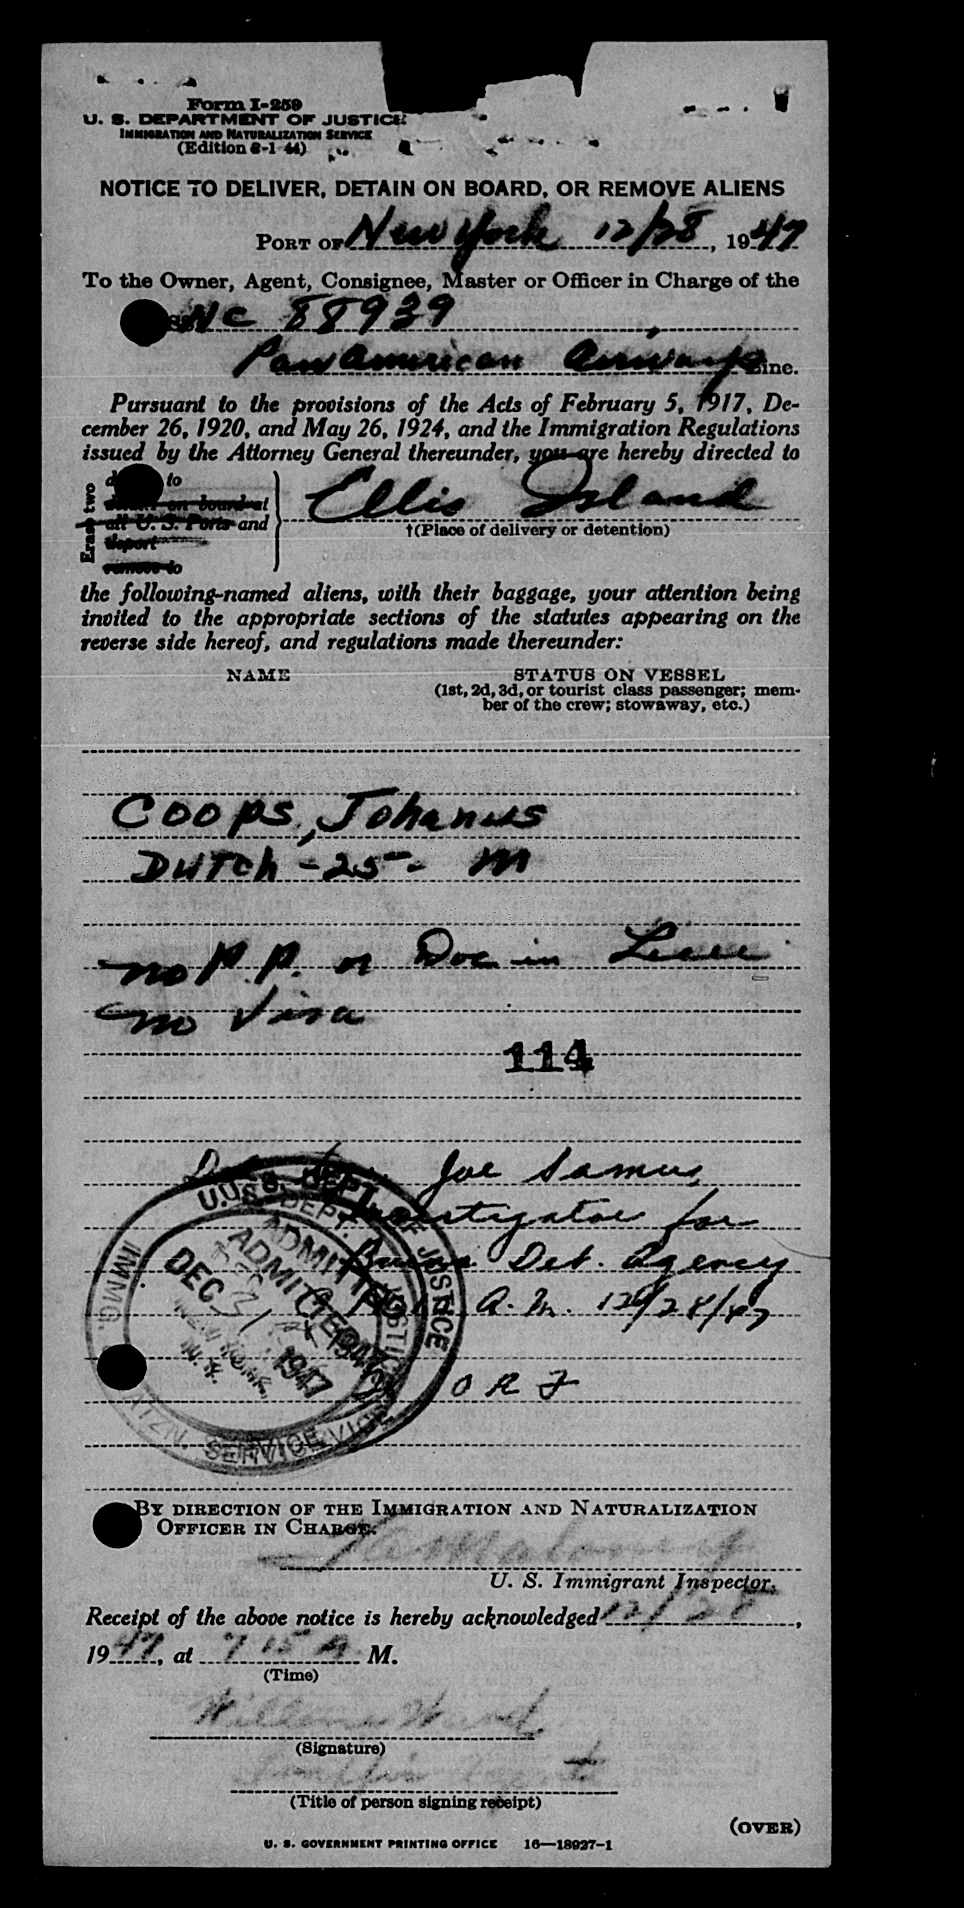 Form I-259
U. S. DEPARTMENT OF JUSTICE
IMMIGRATION AND NATURALIZATION SERVICE
(Edition 8-1-44)
NOTICE TO DELIVER, DETAIN ON BOARD, OR REMOVE ALIENS
PORT OF New York 12/28, 1947
To the Owner, Agent, Consignee, Master or Officer in Charge of the
NC 88939
Pan American Airways Line.
Pursuant to the provisions of the Acts of February 5, 1917, De-
cember 26, 1920, and May 26, 1924, and the Immigration Regulations
issued by the Attorney General thereunder, you are hereby directed to
Erase two
to
detain on board at
all U. S. Ports and
deport
remove to
Ellis Island
†(Place of delivery or detention)
the following-named aliens, with their baggage, your attention being
invited to the appropriate sections of the statutes appearing on the
reverse side hereof, and regulations made thereunder:
NAME STATUS ON VESSEL
(1st, 2d, 3d, or tourist class passenger; mem-
ber of the crew; stowaway, etc.)
Coops, Johanus
DUTCH - 25 - M
no P.P. or Doc in Lieu
no Visa
114
Joe Samus
Investigator for
Det. Agency
A.M. 12/28/47
U. S. DEPT. OF JUSTICE
ADMITTED
DEC 31 1947
NEW YORK,
N. Y.
IMMG. SERVICE
BY DIRECTION OF THE IMMIGRATION AND NATURALIZATION
OFFICER IN CHARGE.
Maloney
U. S. Immigrant Inspector.
Receipt of the above notice is hereby acknowledged 12/28,
1947, at 7 15 A M.
(Time)
(Signature)
(Title of person signing receipt)
(OVER)
U. S. GOVERNMENT PRINTING OFFICE 16—18927-1